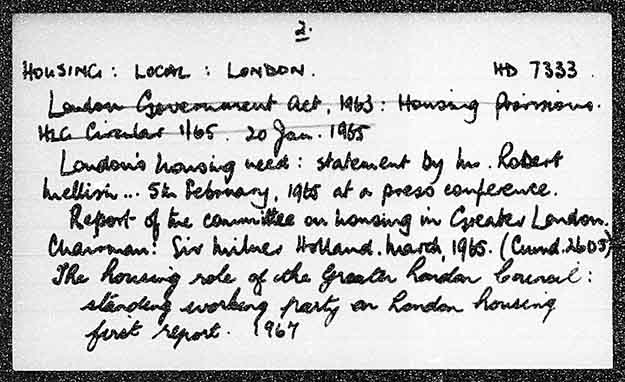 2.
HOUSING: LOCAL: LONDON. HD 7333.
London Government Act, 1963: Housing Provisions.
HLG Circular 1/65. 20 Jan. 1965
London's housing need: statement by Mr. Robert
Mellish... 5th February, 1965 at a press conference.
Report of the committee on housing in Greater London.
Chairman: Sir Milner Holland. March, 1965. (Cmnd. 2605)
The housing role of the Greater London Council:
standing working party on London housing
first report. 1967